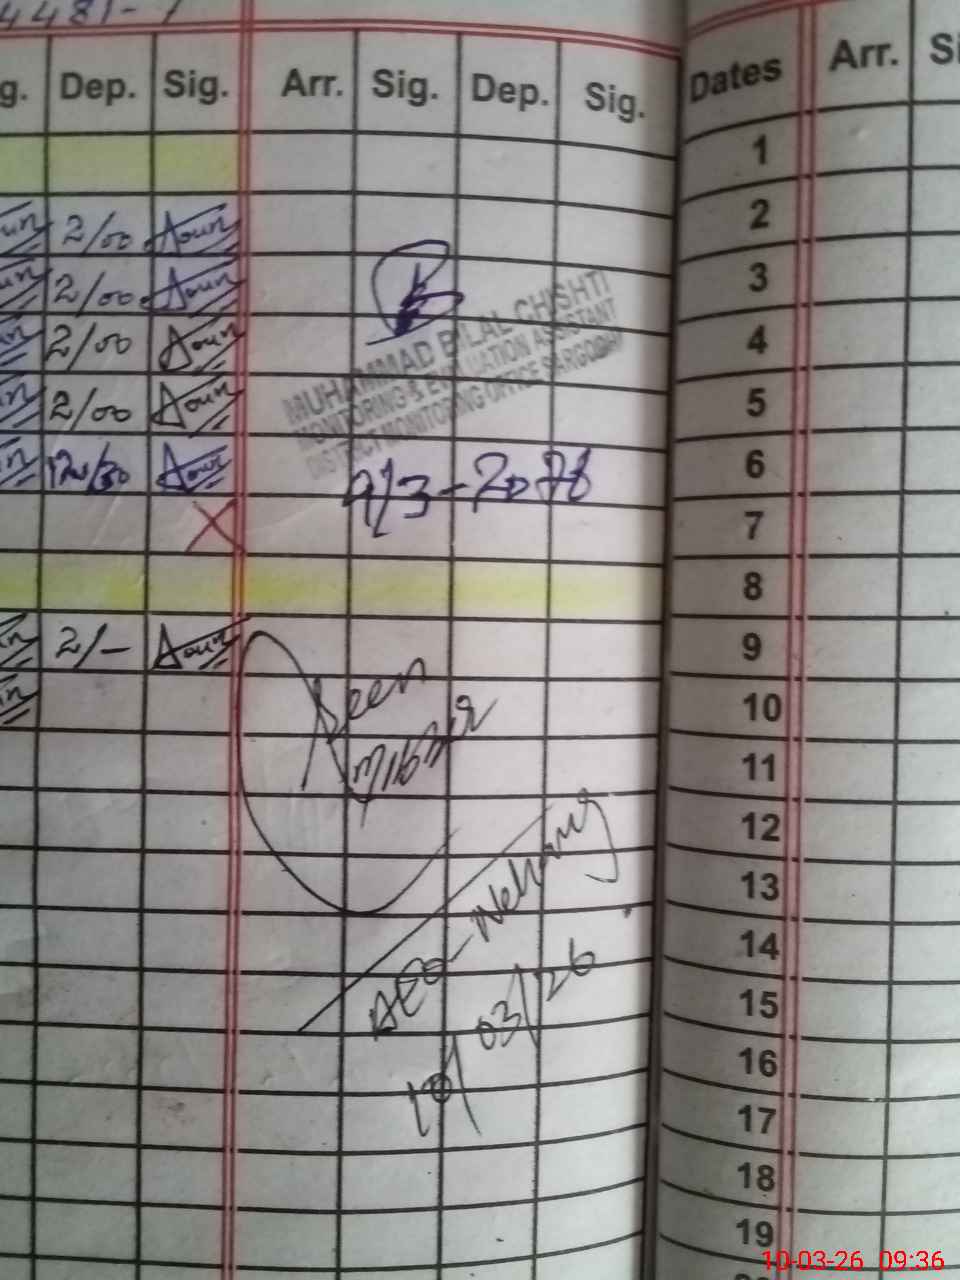 g. Dep. Sig. Arr. Sig. Dep. Sig. Dates Arr.
1
2/00 Aoun 2
2/00 Aoun 3
2/00 Aoun 4
2/00 Aoun 5
12/30 Aoun 6
MUHAMMAD BILAL CHISHTI
MONITORING & EVALUATION ASSISTANT
DISTRICT MONITORING OFFICE SARGODHA
9/3-2026
X 7
8
2/- Aoun 9
10
Seen
11
12
13
AEO-Nehang
14
10/03/26
15
16
17
18
19
10-03-26 09:36